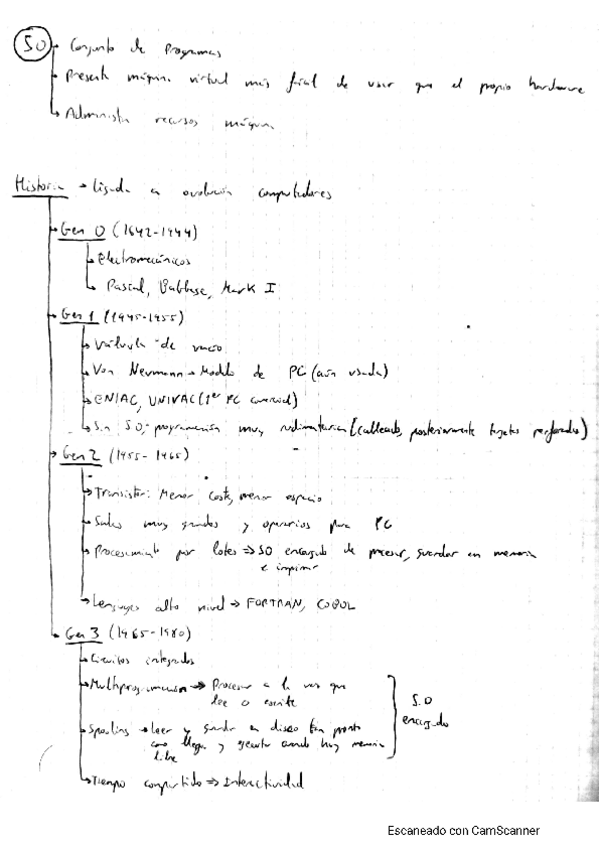 SO → Conjunto de Programas
→ Presenta máquina virtual más fácil de usar que el propio hardware
→ Administra recursos máquina
Historia → ligada a evolución computadores
→ Gen 0 (1642-1944)
→ Electromecánicos
→ Pascal, Babbage, Mark I
→ Gen 1 (1945-1955)
→ Válvula de vacío
→ Von Neumann → Modelo de PC (aún usada)
→ ENIAC, UNIVAC (1er PC comercial)
→ Sin SO, programación muy rudimentaria (cableado, posteriormente tarjetas perforadas)
→ Gen 2 (1955-1965)
→ Transistor: Menor coste, menor espacio
→ Salas muy grandes y operarios para PC
→ Procesamiento por lotes ⇒ SO encargado de procesar, guardar en memoria
e imprimir
→ Lenguajes alto nivel ⇒ FORTRAN, COBOL
→ Gen 3 (1965-1980)
→ Circuitos integrados
→ Multiprogramación ⇒ Procesar a la vez que
lee o escribe
→ Spooling → Leer y guardar en disco tan pronto
como llega y ejecutar cuando hay memoria
libre
S.O
encargado
→ Tiempo compartido ⇒ Interactividad
Escaneado con CamScanner